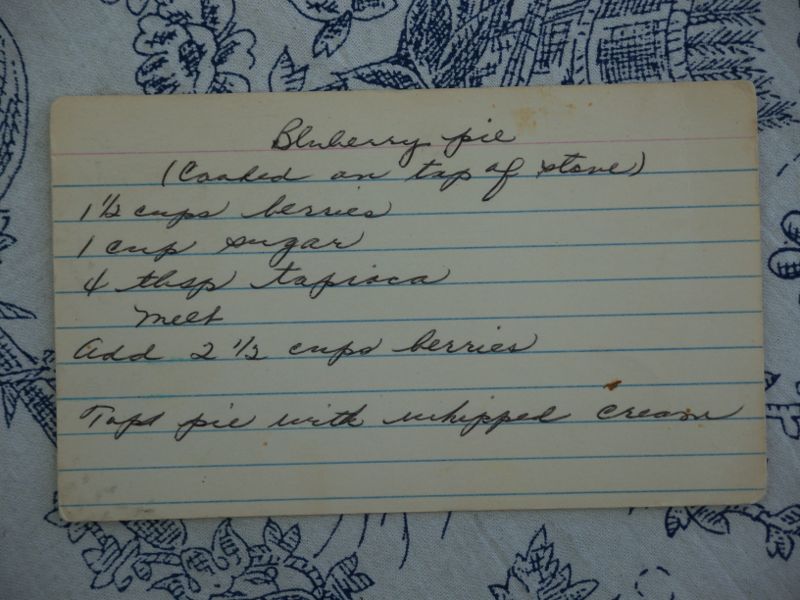 Bluberry pie
(Cooked on top of stove)
1 1/2 cups berries
1 cup sugar
4 tbsp tapioca
melt
Add 2 1/2 cups berries
Tops pie with whipped cream